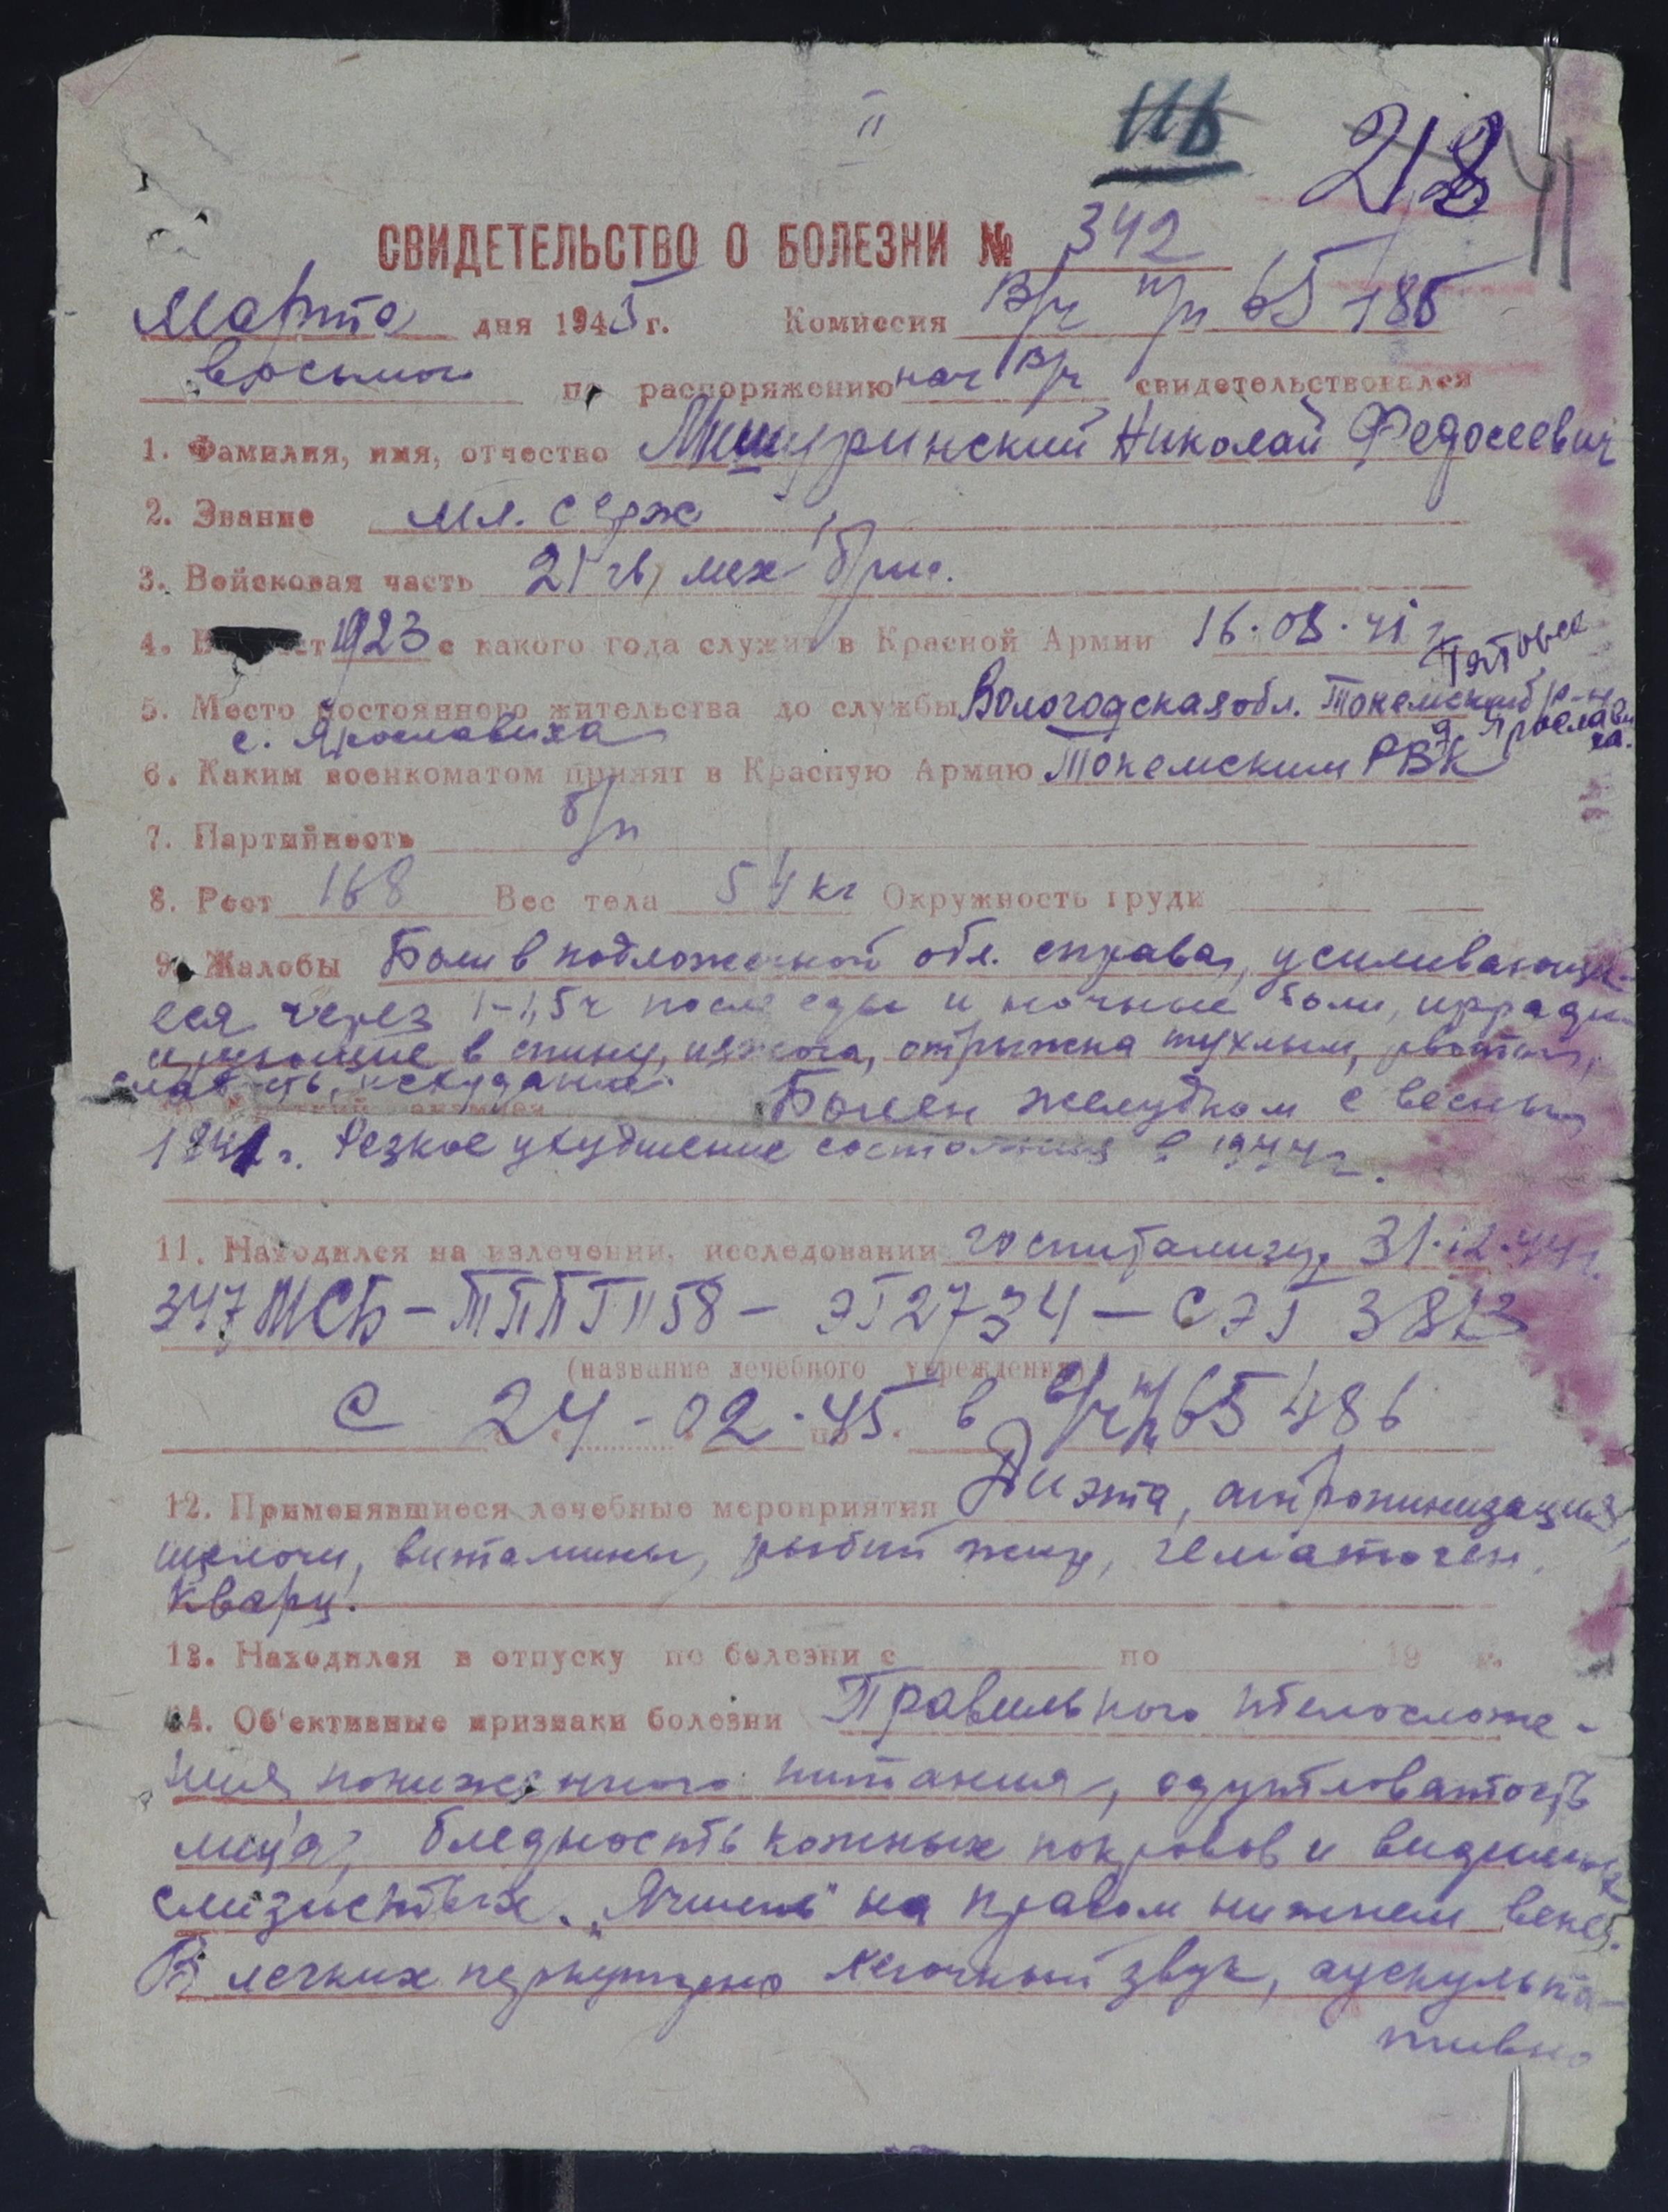 II
218
СВИДЕТЕЛЬСТВО О БОЛЕЗНИ № 342
Марта дня 1945 г. Комиссия В/ч п/п 65486
восьмого по распоряжению нач В/ч свидетельствовался
1. Фамилия, имя, отчество Мишуринский Николай Федосеевич
2. Звание мл. серж
3. Войсковая часть 21 гв, мех бриг.
4. В ст 1923 с какого года служит в Красной Армии 16.08.41 г
5. Место постоянного жительства до службы Вологодская обл. Тотемский р-н
с. Ярославиха д. Ярославиха.
6. Каким военкоматом принят в Красную Армию Тотемским РВК
7. Партийность б/п
8. Рост 168 Вес тела 54 кг Окружность груди
9. Жалобы Боли в подложечной обл. справа, усиливающи-
еся через 1-1,5 ч после еды и ночные боли, ирради-
ирующие в спину, изжога, отрыжка тухлым, рвота,
слабость, исхудание.
Болен желудком с весны
1941 г. Резкое ухудшение состояния в 1944 г.
11. Находился на излечении, исследовании госпитализир 31.12.44 г.
347 МСБ – ТППГ 1158 – ЭГ 2734 – СЭГ 3813
(название лечебного учреждения)
с 24-02.45. в в/ч п/п 65486
12. Применявшиеся лечебные мероприятия Диэта, атропинизация,
щелочи, витамины, рыбий жир, гематоген,
кварц.
13. Находился в отпуску по болезни с по 19 г.
14. Об'ективные признаки болезни Правильного телосложе-
ния пониженного питания, одутловатость
лица, бледность кожных покровов и видимых
слизистых. „Ячмень" на правом нижнем веке.
В легких перкуторно легочный звук, аускульта-
тивно